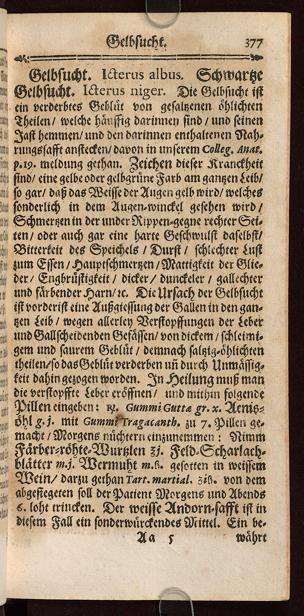 Gelbsucht. 377
Gelbsucht. Icterus albus. Schwartze
Gelbsucht. Icterus niger. Die Gelbsucht ist
ein verderbtes Geblüt von gesaltzenen öhlichten
Theilen / welche häuffig darinnen sind / und seinen
Jast hemmen / und den darinnen enthaltenen Nah-
rungssafft anstecken / davon in unserem Colleg. Anat.
p. 19. meldung gethan. Zeichen dieser Kranckheit
sind / eine gelbe oder gelbgrüne Farb am gantzen Leib /
so gar / daß das Weisse der Augen gelb wird / welches
sonderlich in dem Augen-winckel gesehen wird /
Schmertzen in der under Rippen-gegne rechter Sei-
ten / oder auch gar eine harte Geschwulst daselbst /
Bitterkeit des Speichels / Durst / schlechter Lust
zum Essen / Hauptschmertzen / Mattigkeit der Glie-
der / Engbrüstigkeit / dicker / dunckeler / gallechter
und färbender Harn / ꝛc. Die Ursach der Gelbsucht
ist vorderist eine Außgiessung der Gallen in den gan-
tzen Leib / wegen allerley Verstopffungen der Leber
und Gallscheidenden Gefässen / von dickem / schleimi-
gem und saurem Geblüt / demnach saltzig-öhlichten
theilen / so das Geblüt verderben uñ durch Unmässig-
keit dahin gezogen worden. In Heilung muß man
die verstopffte Leber eröffnen / und mithin folgende
Pillen eingeben: ℞. Gummi Guttæ gr. x. Aenis-
öhl g. j. mit Gummi Tragacanth. zu 7. Pillen ge-
macht / Morgens nüchtern einzunemmen: Nimm
Färber-röhte-Wurtzlen ʒj. Feld-Scharlach-
blätter m. j. Wermuht m. ß. gesotten in weissem
Wein / darzu gethan Tart. martial. ʒiß. von dem
abgesiegeten soll der Patient Morgens und Abends
6. loht trincken. Der weisse Andorn-safft ist in
diesem Fall ein sonderwürckendes Mittel. Ein be-
Aa 5 währt